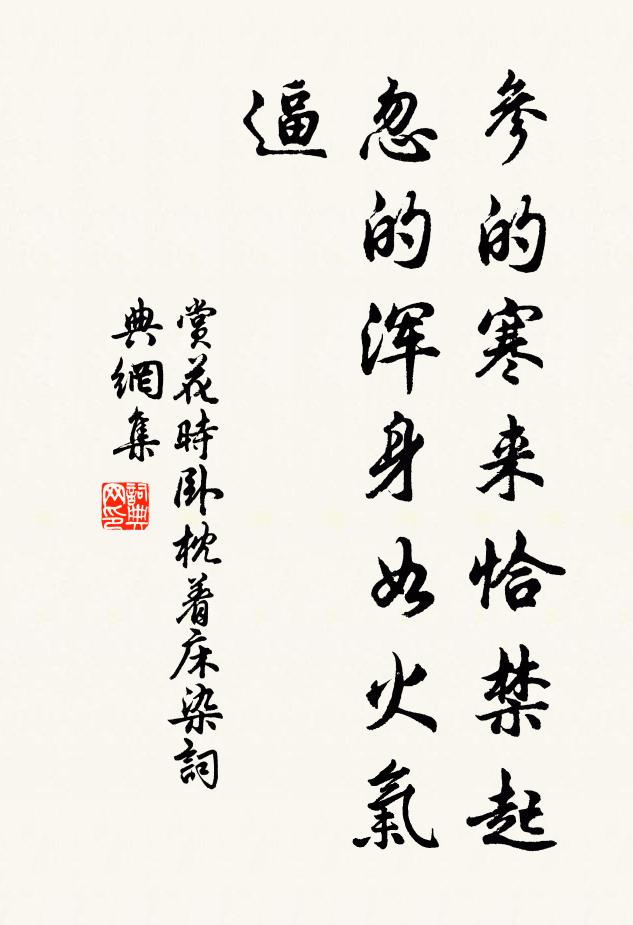 参的寒来恰禁起
忽的浑身如火氣
逼
赏花時卧枕着床染詞
典網集
詞典网印